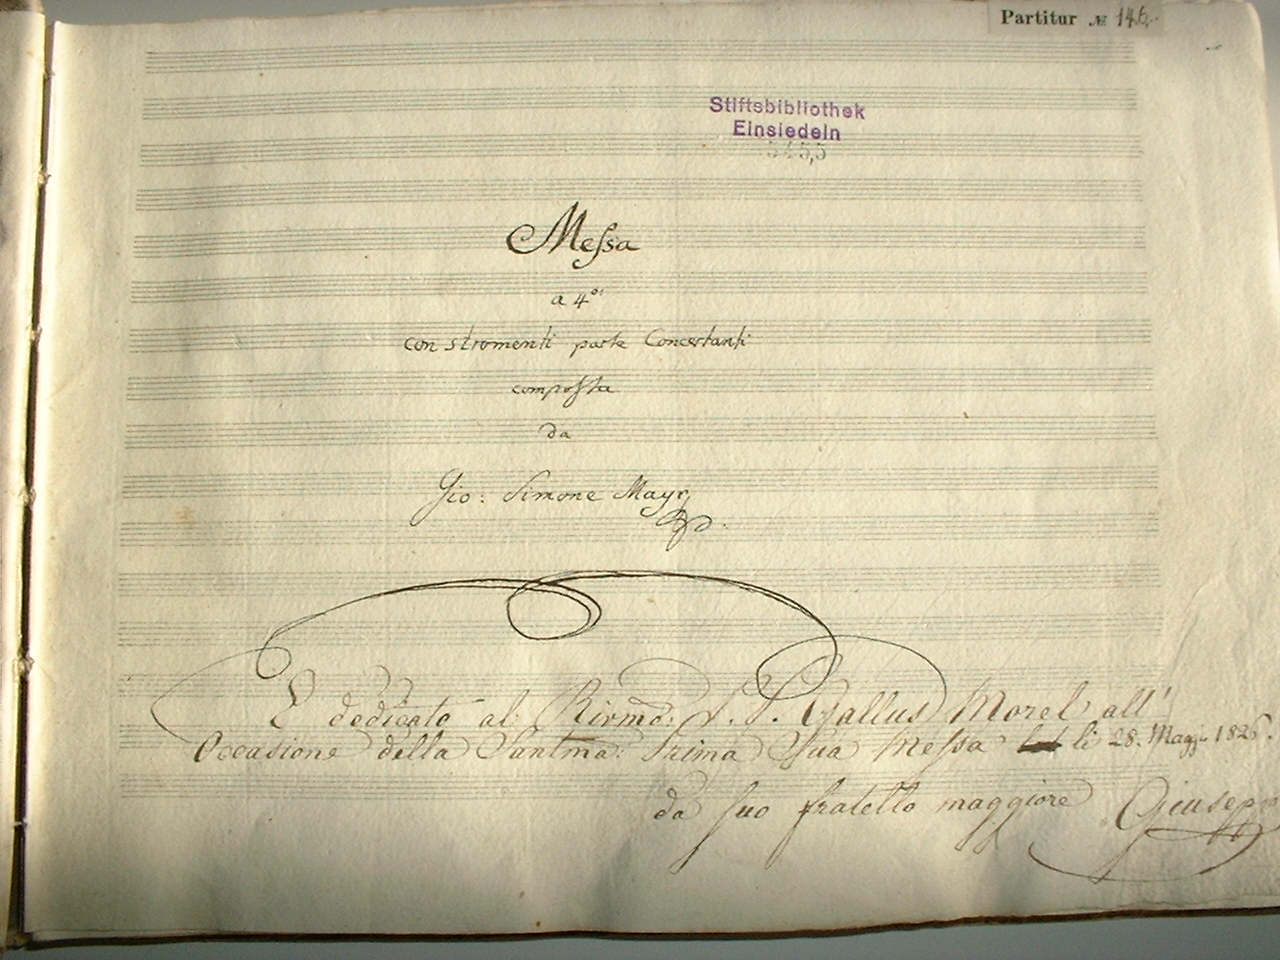 Partitur № 146.
Stiftsbibliothek
Einsiedeln
545,5
Messa
a 4º
con stromenti parte Concertanti
composta
da
Gio: Simone Mayr
E dedicato al Rirmo: P. Gallus Morel all'
Occasione della Santma: Prima Sua Messa li 28. Maggio 1826.
da suo fratello maggiore Giuseppe